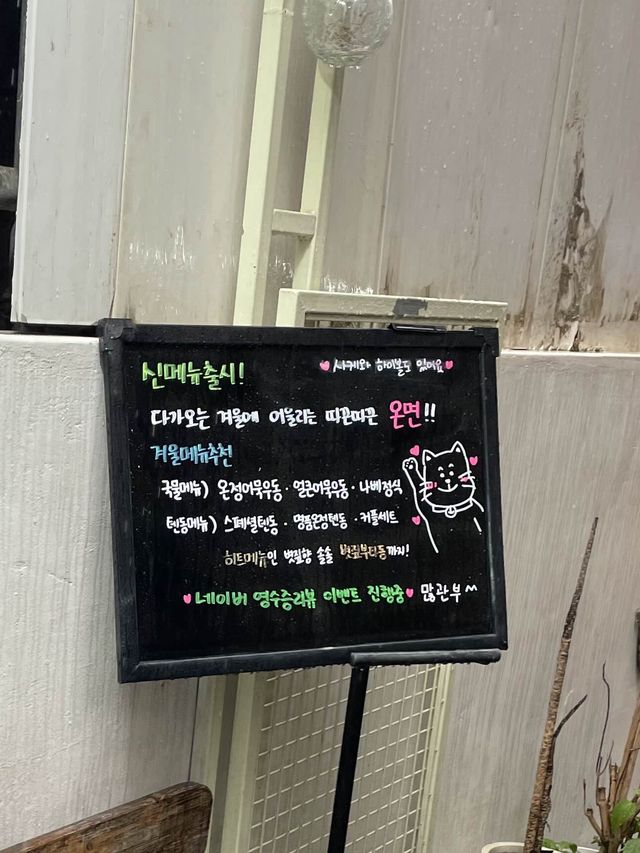 신메뉴출시!
사케와 하이볼도 있어요
다가오는 겨울에 어울리는 따끈따끈 온면!!
겨울메뉴추천
국물메뉴) 온정어묵우동 · 얼큰어묵우동 · 나베정식
텐동메뉴) 스페셜텐동 · 명품온정텐동 · 커플세트
히트메뉴인 볏짚향 솔솔 볏짚부타동까지!
네이버 영수증리뷰 이벤트 진행중 많관부^^